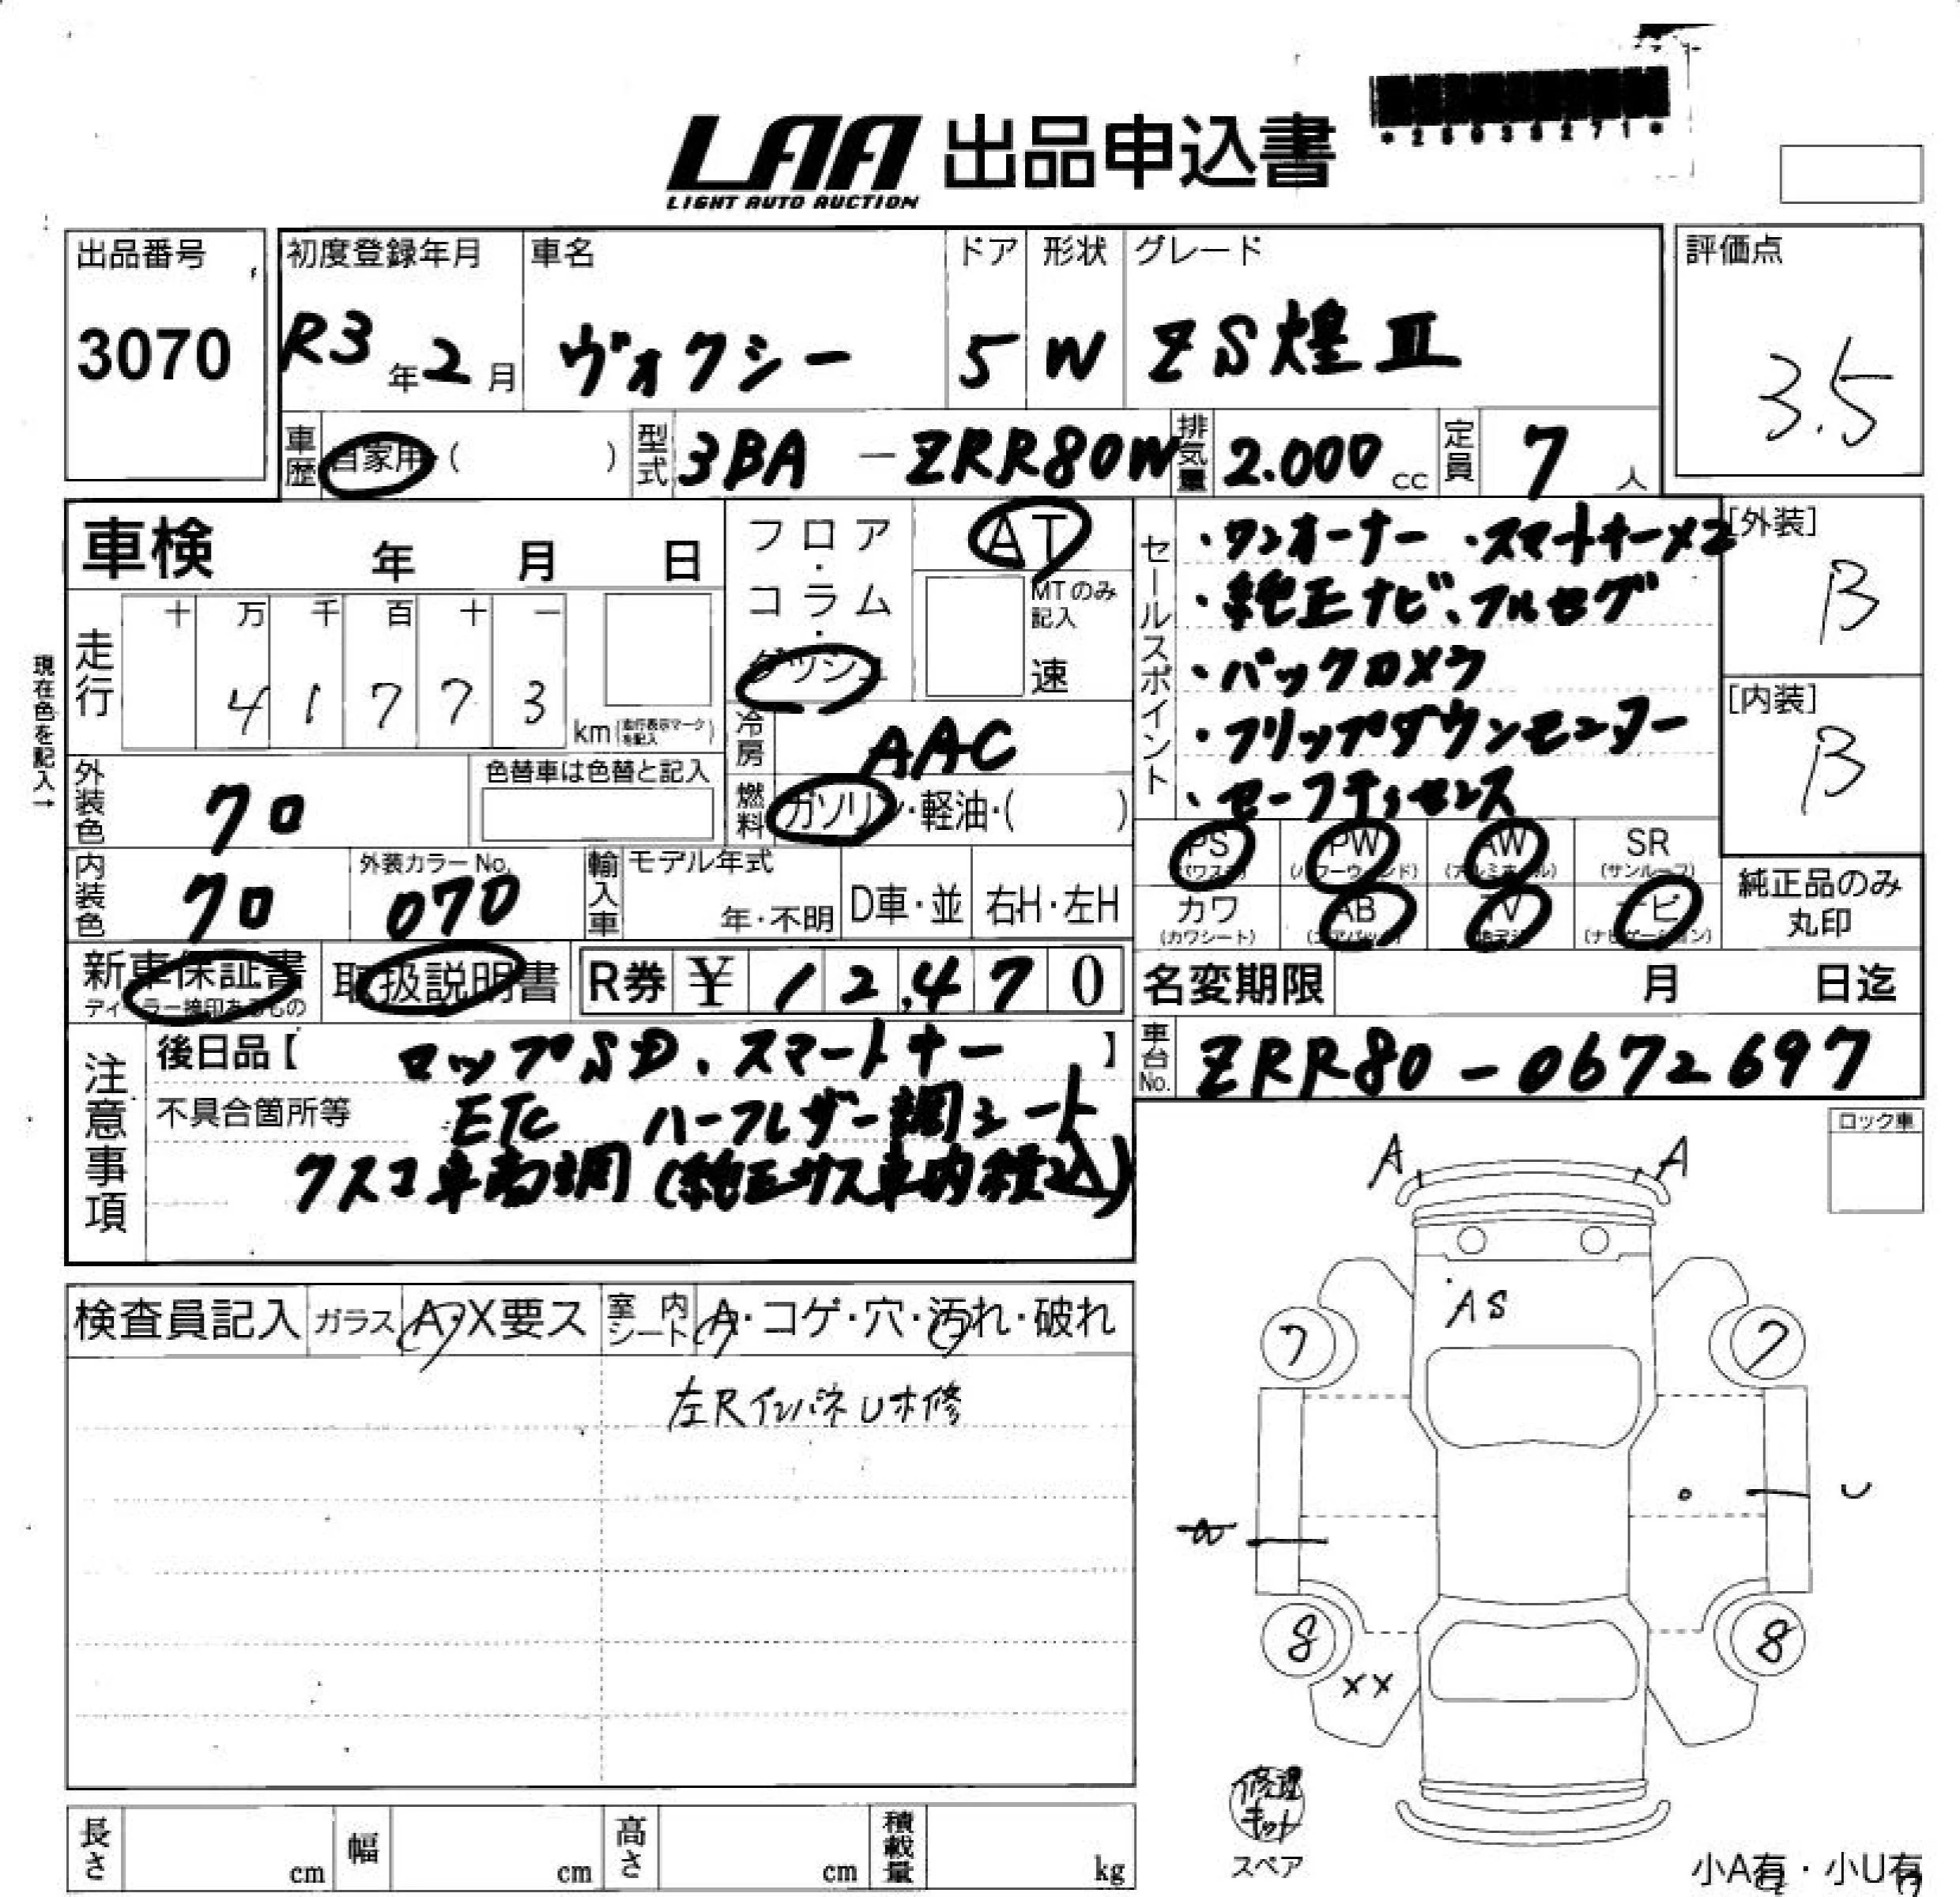 LAA 出品申込書
LIGHT AUTO AUCTION
*25036271*
出品番号 初度登録年月 車名 ドア 形状 グレード 評価点
3070 R3年2月 ヴォクシー 5 W ZS煌Ⅲ 3.5
車歴 自家用・( ) 型式 3BA-ZRR80W 排気量 2.000cc 定員 7人
車検 年 月 日
フロア・コラム・ダッシュ
AT
MTのみ記入
速
セールスポイント
・ワンオーナー ・スマートキー×2
・純正ナビ、フルセグ
・バックカメラ
・フリップダウンモニター
・セーフティセンス
[外装]
B
[内装]
B
現在色を記入→
走行 十 万 千 百 十 一
4 1 7 7 3 km(走行表示マークを記入)
冷房 AAC
燃料 ガソリン・軽油・( )
外装色 クロ 色替車は色替と記入
内装色 クロ 外装カラーNo. 070
輸入車 モデル年式 年・不明 D車・並 右H・左H
PS (パワステ) PW (パワーウィンド) AW (アルミホイル) SR (サンルーフ)
カワ (カワシート) AB (エアバック) TV ナビ (ナビゲーション)
純正品のみ丸印
新車保証書 ディーラー捺印あるもの 取扱説明書 R券 ¥ 12,470
名変期限 月 日迄
車台No. ZRR80-0672697
注意事項
後日品【 マップSD、スマートキー 】
不具合箇所等 ETC ハーフレザー調シート
クスコ車高調(純正サス車内積込)
ロック車
A A
検査員記入 ガラス A・X要ス 室内シート A・コゲ・穴・汚れ・破れ
左RインパネU木修
AS
7 7
U
W
8 8
XX
修理キット
スペア
長さ cm 幅 cm 高さ cm 積載量 kg
小A有・小U有